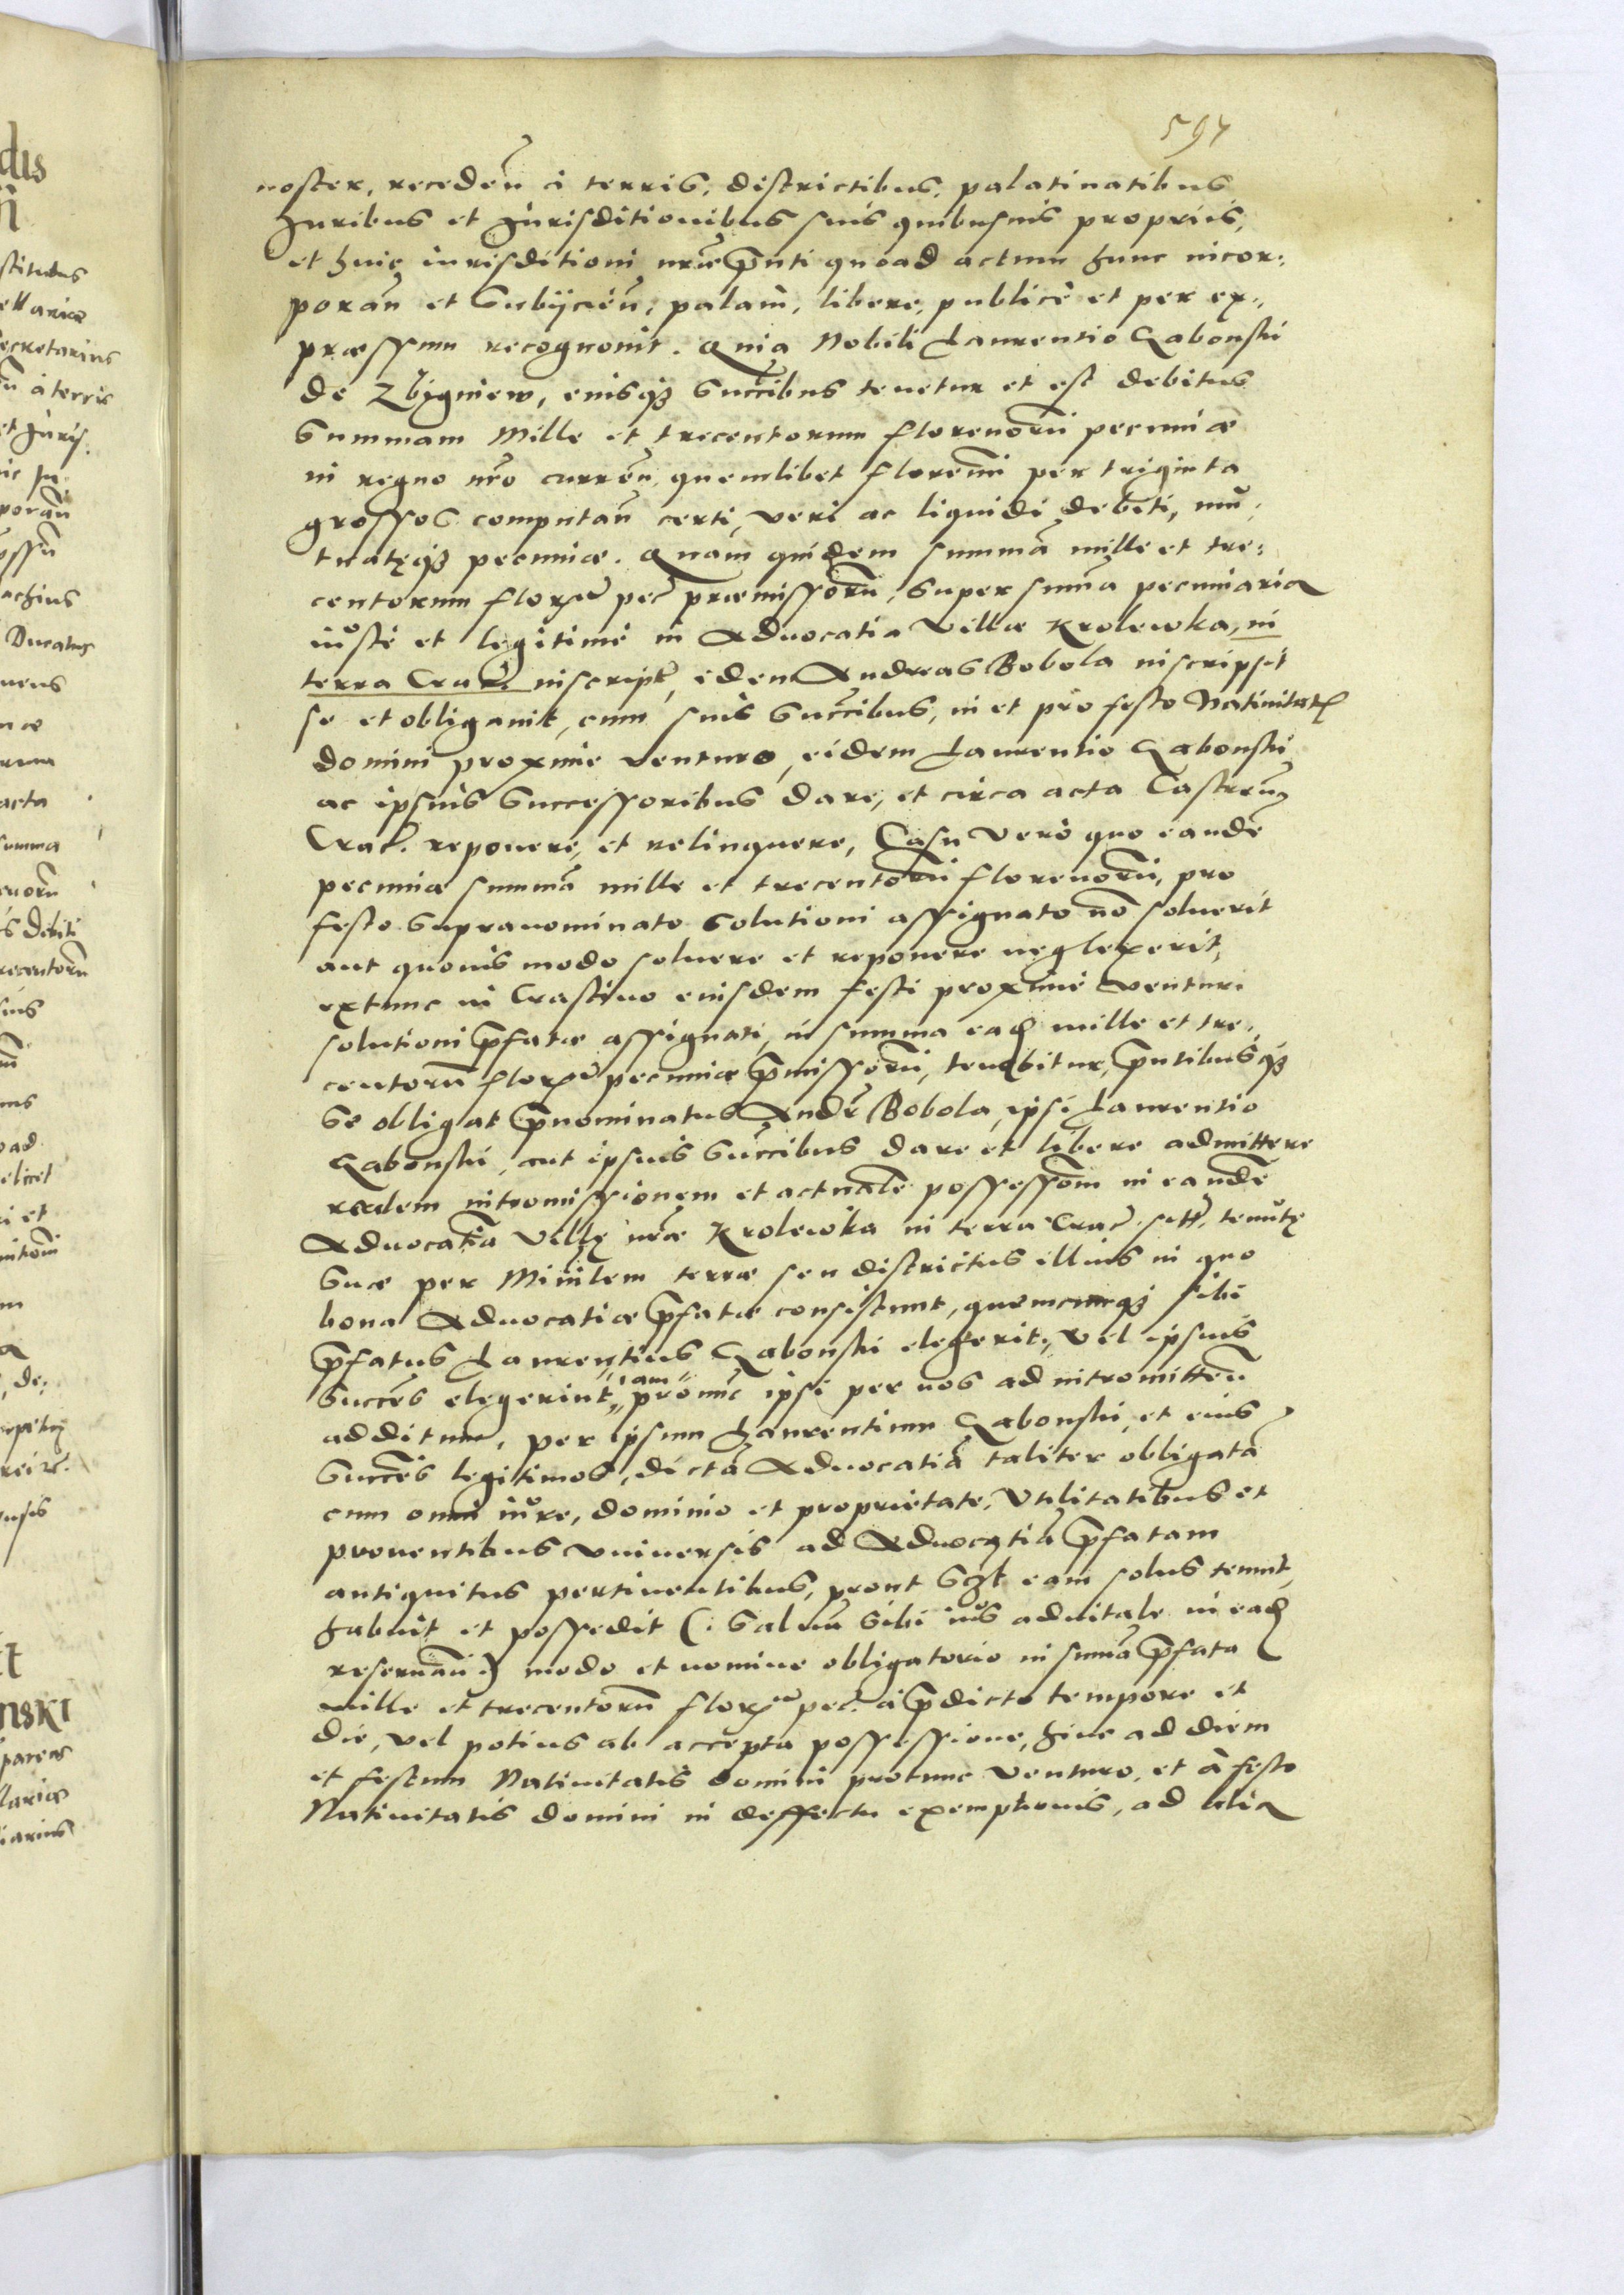 597
noster, recedeñ à terris, districtibus, palatinatibus
Iuribus et Iurisditionibus suis quibusuis proprijs,
et huic iurisditioni nr̃æ p̃nti quoad actum hunc incor:
porañ et Subijcieñ, palam, libere, publicè et per ex:
præssum recognouit. Quia Nobili Laurentio Gabonski
de Zbigniew, eiusq3 Succ̃ibus tenetur et est debitus
Summam Mille et trecentorum florenorũ pecuniæ
in regno nr̃o curreñ, quemlibet florenũ per triginta
grossos computañ certi, veri ac liquidi debiti, mu:
tuatęq3 pecuniæ. Quam quidem summã mille et tre:
centorum flor: pec̃ præmissorũ, super sum̃a pecuniaria
iustè et legitimè in Aduocatia Villæ Krolewka, in
terra Crac̃. inscript̃, idem Andreas Bobola inscripsit
se et obligauit, cum suis Succ̃ibus, in et pro festo Natiuitat
domini proximè venturo, eidem Laurentio Gabonski
ac ipsius Successoribus dare, et circa acta Castreñ
Crac̃. reponere, et relinquere, Casu verò quo eandẽ
pecuniæ summã mille et trecentorũ florenorũ, pro
festo supranominato Solutioni assignato nõ soluerit
aut quouis modo soluere et reponere neglexerit,
extunc in Crastino eiusdem festi proximè venturi
solutioni p̃fatæ assignati, in summa ead mille et tre:
centorũ flor: pecuniæ p̃missorũ, tenebitur, p̃ntibusq3
se obligat p̃nominatus Andr̃ Bobola, ipsi Laurentio
Gabonski, aut ipsius Succ̃ibus dare et libere admittere
realem intromissionem et actualẽ possessionẽ in eandẽ
Aduocatiã Villę nr̃æ Krolewka in terra Crac̃. sitt̃, tenutę
suæ per Min̄lem terræ seu districtus illius in quo
bona Aduocatiæ p̃fatæ consistunt, quemcunq3 sibi
p̃fatus Laurentius Gabonski elegerit, vel ipsius
Succ̃es elegerint, iam pronunc ipsi per nos ad intromitteñ
additum, per ipsum Laurentium Gabonski, et eius
Succ̃es legitimos, dictã Aduocatiã taliter obligatã
cum omni iure, dominio et proprietate, Vtilitatibus et
prouentibus vniuersis ad Aduocatiã p̃fatam
antiquitus pertinentibus, prout eam solus tenuit,
habuit et possedit (: Saluũ sibi ius aduitale in ead
reseruañ:) modo et nomine obligatorio in sum̃a p̃fata
mille et trecentorũ flor: pec̃. à p̃dicto tempore et
die, vel potius ab accepta possessione, hinc ad diem
et festum Natiuitatis domini protunc venturo, et à festo
Natiuitatis domini in deffectu exemptionis, ad alia